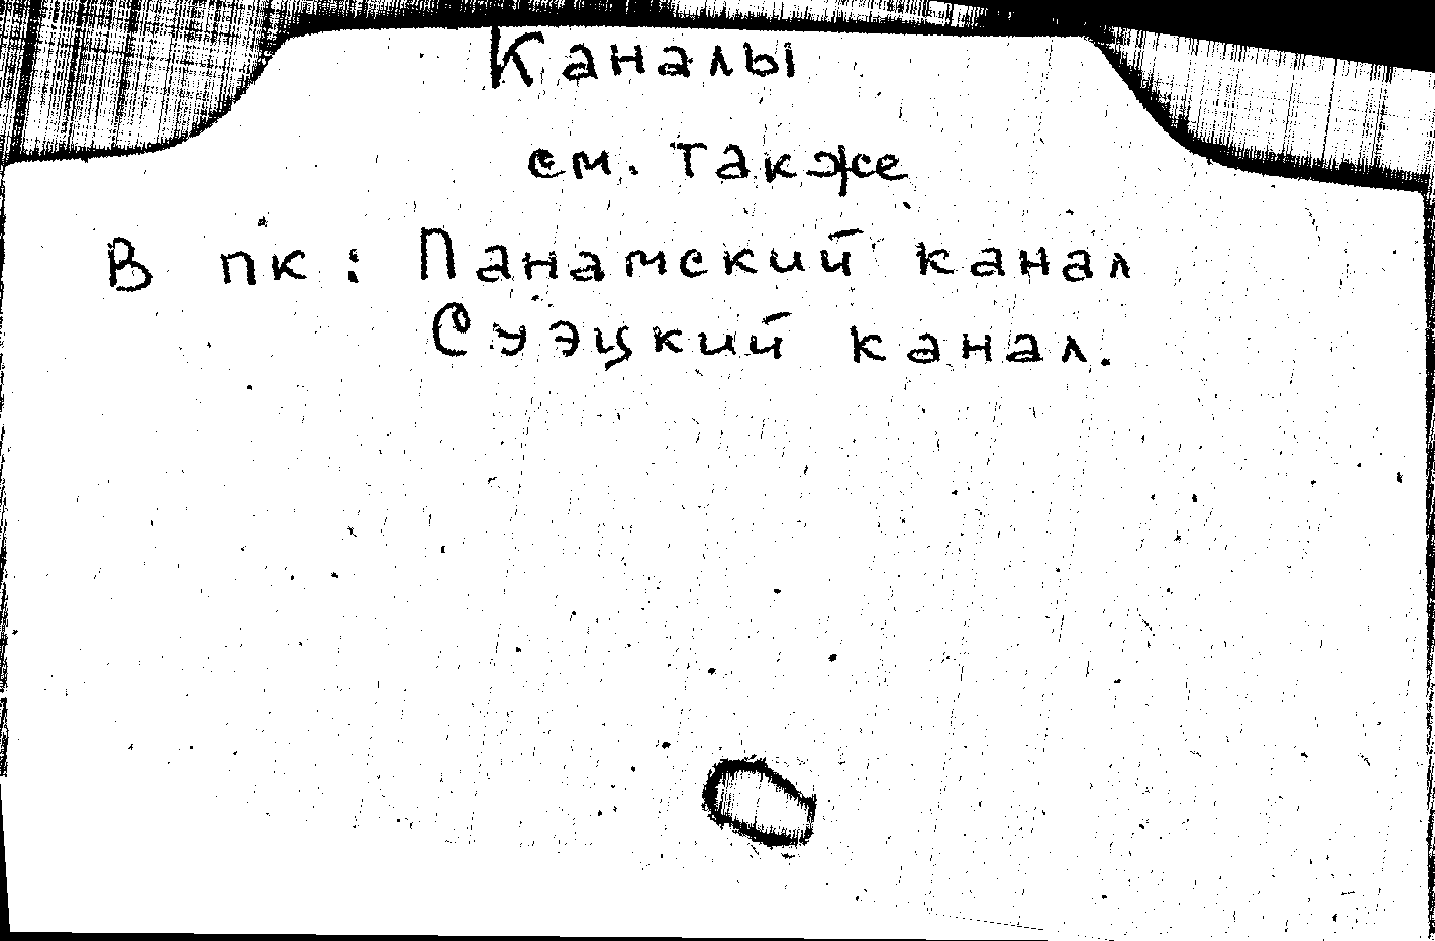 Каналы
см. также
В пк: Панамский канал
Суэцкий канал.